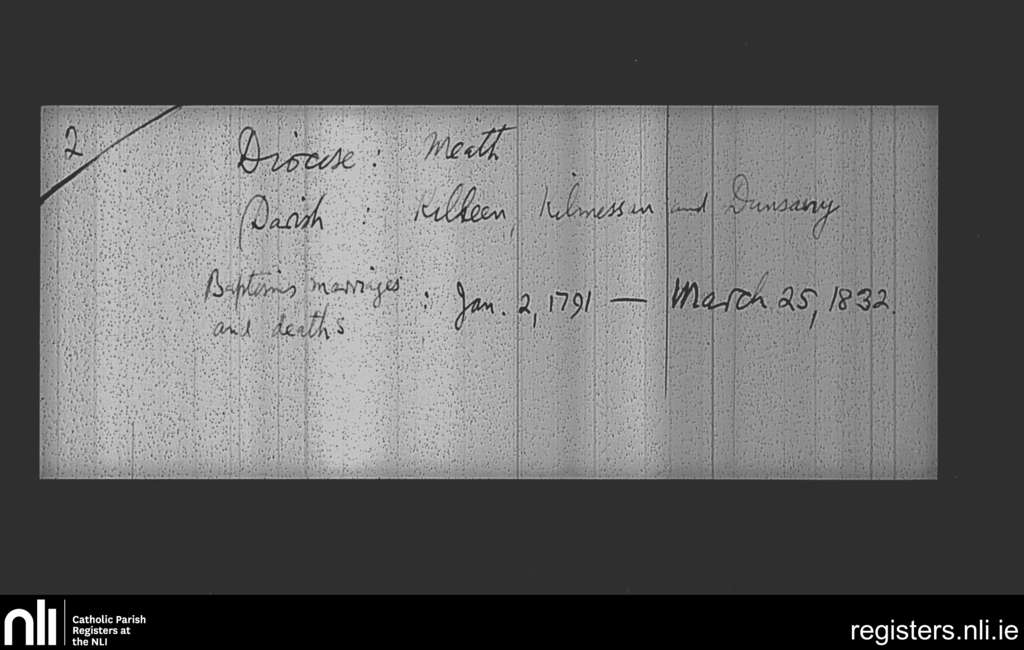 2
Diocese : Meath
Parish : Kilkeen, Kilmessan and Dunsany
Baptisms marriges : Jan. 2, 1791 — March 25, 1832.
and deaths
nli
Catholic Parish
Registers at
the NLI
registers.nli.ie